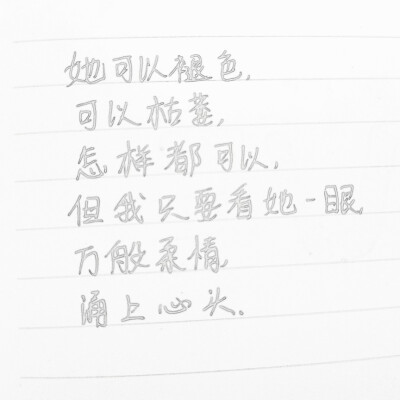 她可以褪色,
可以枯萎,
怎样都可以,
但我只要看她一眼
万般柔情
涌上心头.